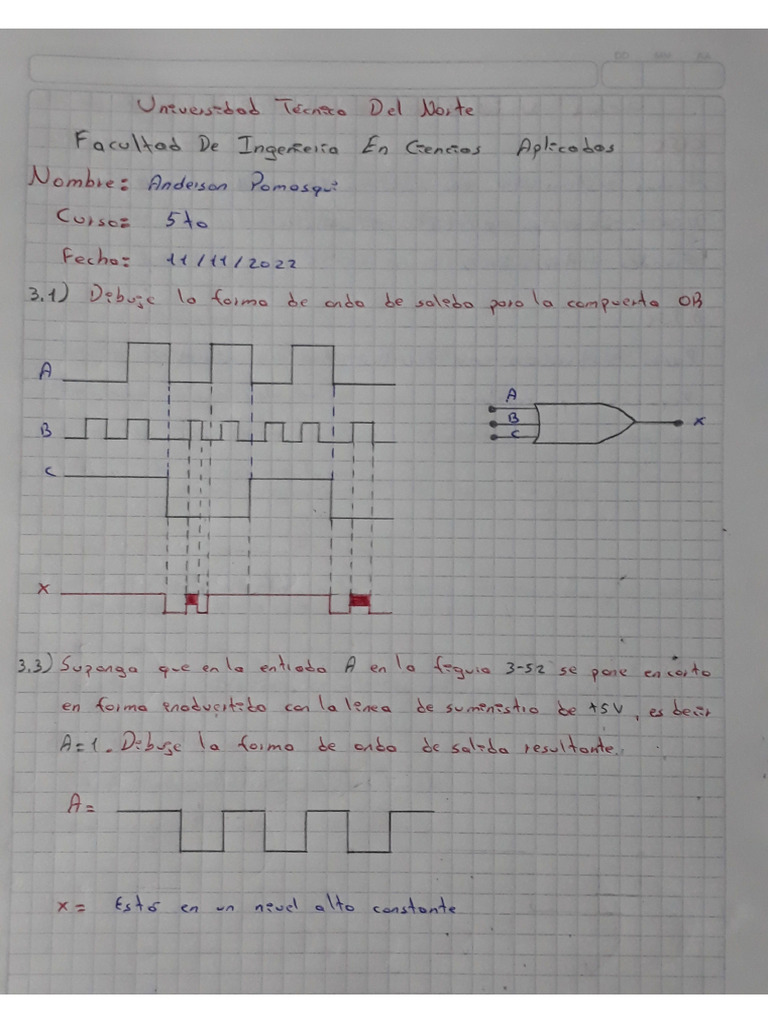 Universidad Técnica Del Norte
Facultad De Ingenieria En Ciencias Aplicadas
Nombre: Anderson Pomasqui
Curso: 5to
Fecha: 11/11/2022
3.1) Dibuje la forma de onda de saleda para la compuerta OB
A
B
C
X
A
B
C
x
3.3) Suponga que en la entrada A en la figura 3-52 se pone en corto
en forma inadvertida con la linea de suministro de +5V, es decir
A=1. Dibuje la forma de onda de salida resultante.
A=
x= Está en un nivel alto constante